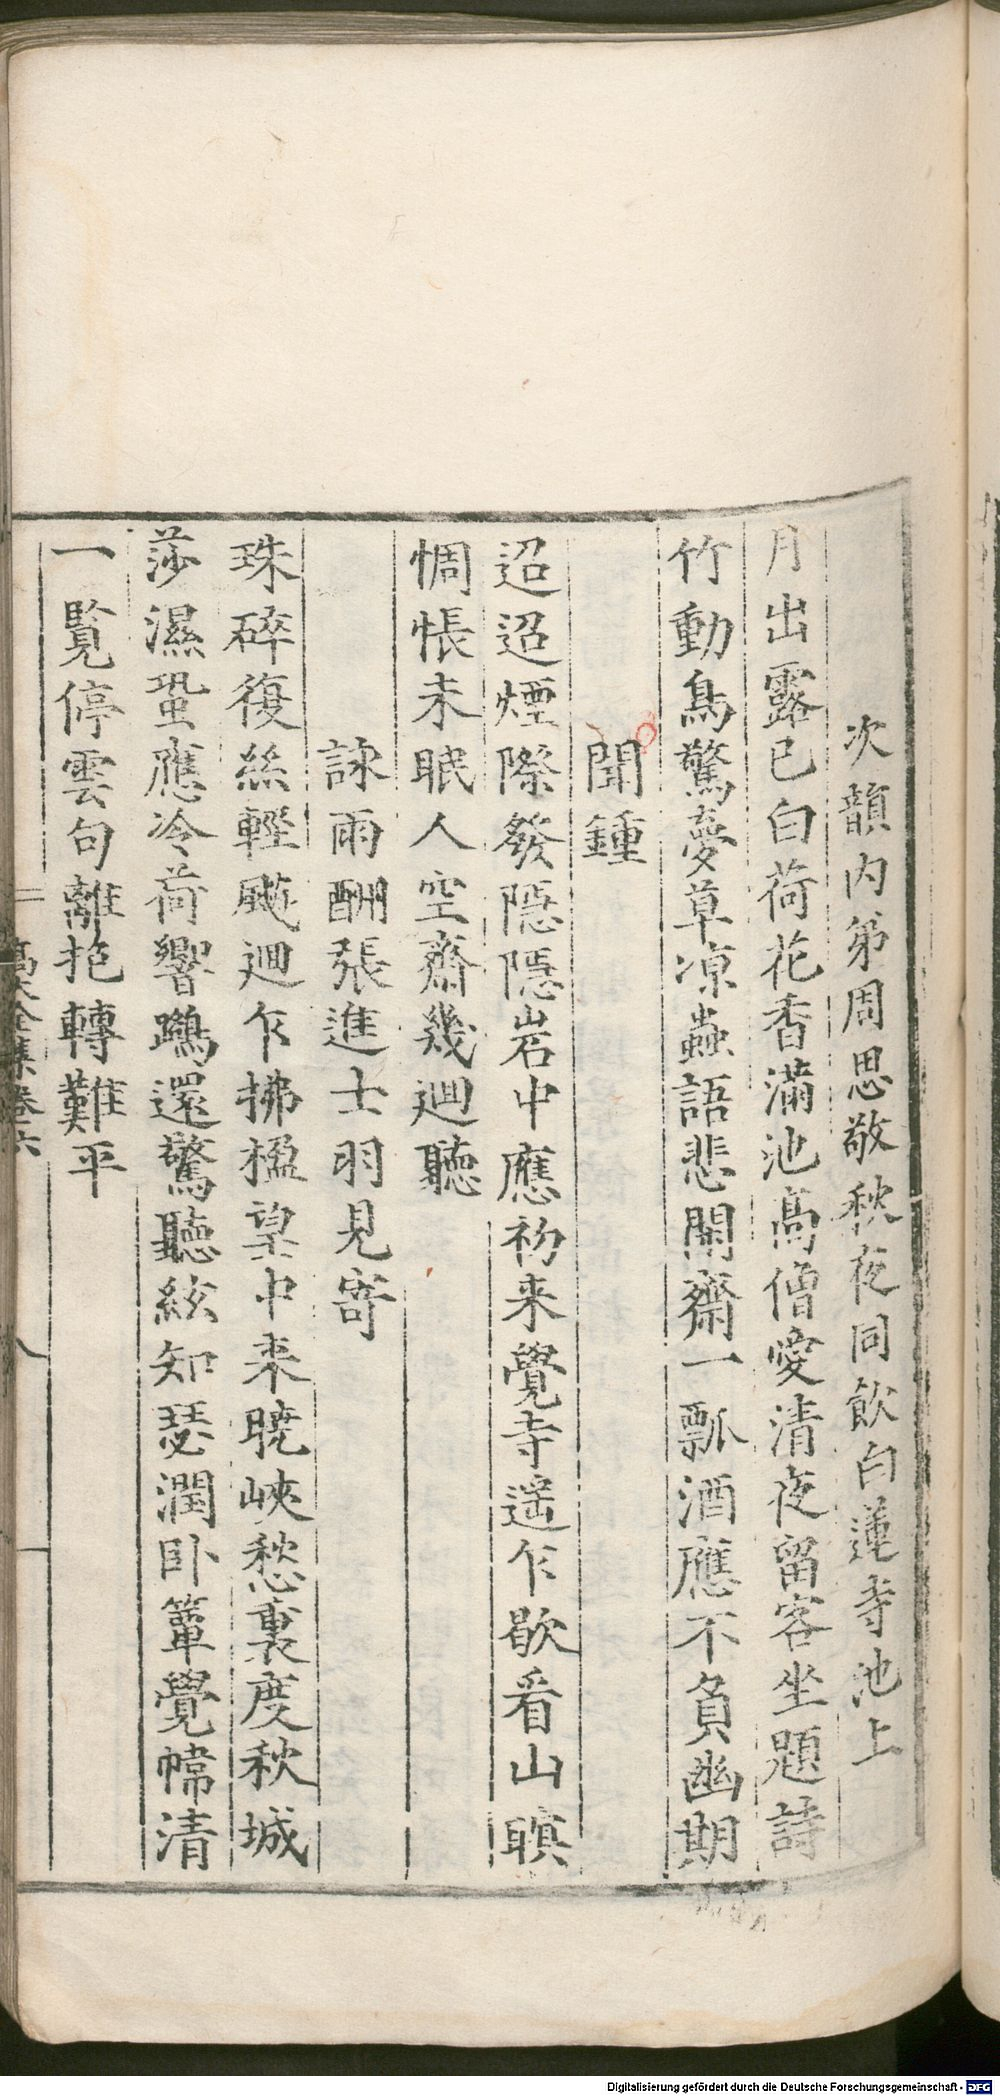 次韻内弟周思敬秋夜同飲白蓮寺池上
月出露已白荷花香滿池髙僧愛清夜留客坐題詩
竹動鳥驚夢草凉蟲語悲開齋一瓢酒應不負幽期
聞鍾
迢迢煙際發隠隠岩中應初来覺寺遥乍歇看山暝
惆悵未眠人空齋幾廻聽
詠雨酬張進士羽見寄
珠碎復絲輕颺廻乍拂楹望中来暁峽愁裏度秋城
莎濕蛩應冷荷響鷁還驚聽絃知瑟潤卧簟覺幃清
一覧停雲句離抱轉難平
髙太全集卷六
八
Digitalisierung gefördert durch die Deutsche Forschungsgemeinschaft - DFG